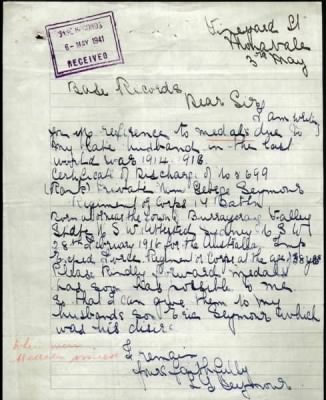 BASE RECORDS
6 - MAY 1941
RECEIVED
Vineyard St
Mona Vale
3rd May
Base Records
Dear Sir
I am writing
you in reference to medals due to
my late husband in the last
world war 1914, 1918.
Certificate of Discharge No 2699
(Rank) Private Name George Seymour
Regiment or Corps 17 Batln
Born at or near the town of Burragorang Valley
State N.S.W. Attested Sydney N.S.W
28th February 1916 for the Australian Imp
Regiment or Corps at the age 38 yrs
Please Kindly forward medals
has soon has possible to me
so that I can give them to my
husbands son Eric Seymour which
was his desire.
I remain
yours faithfully
Seymour